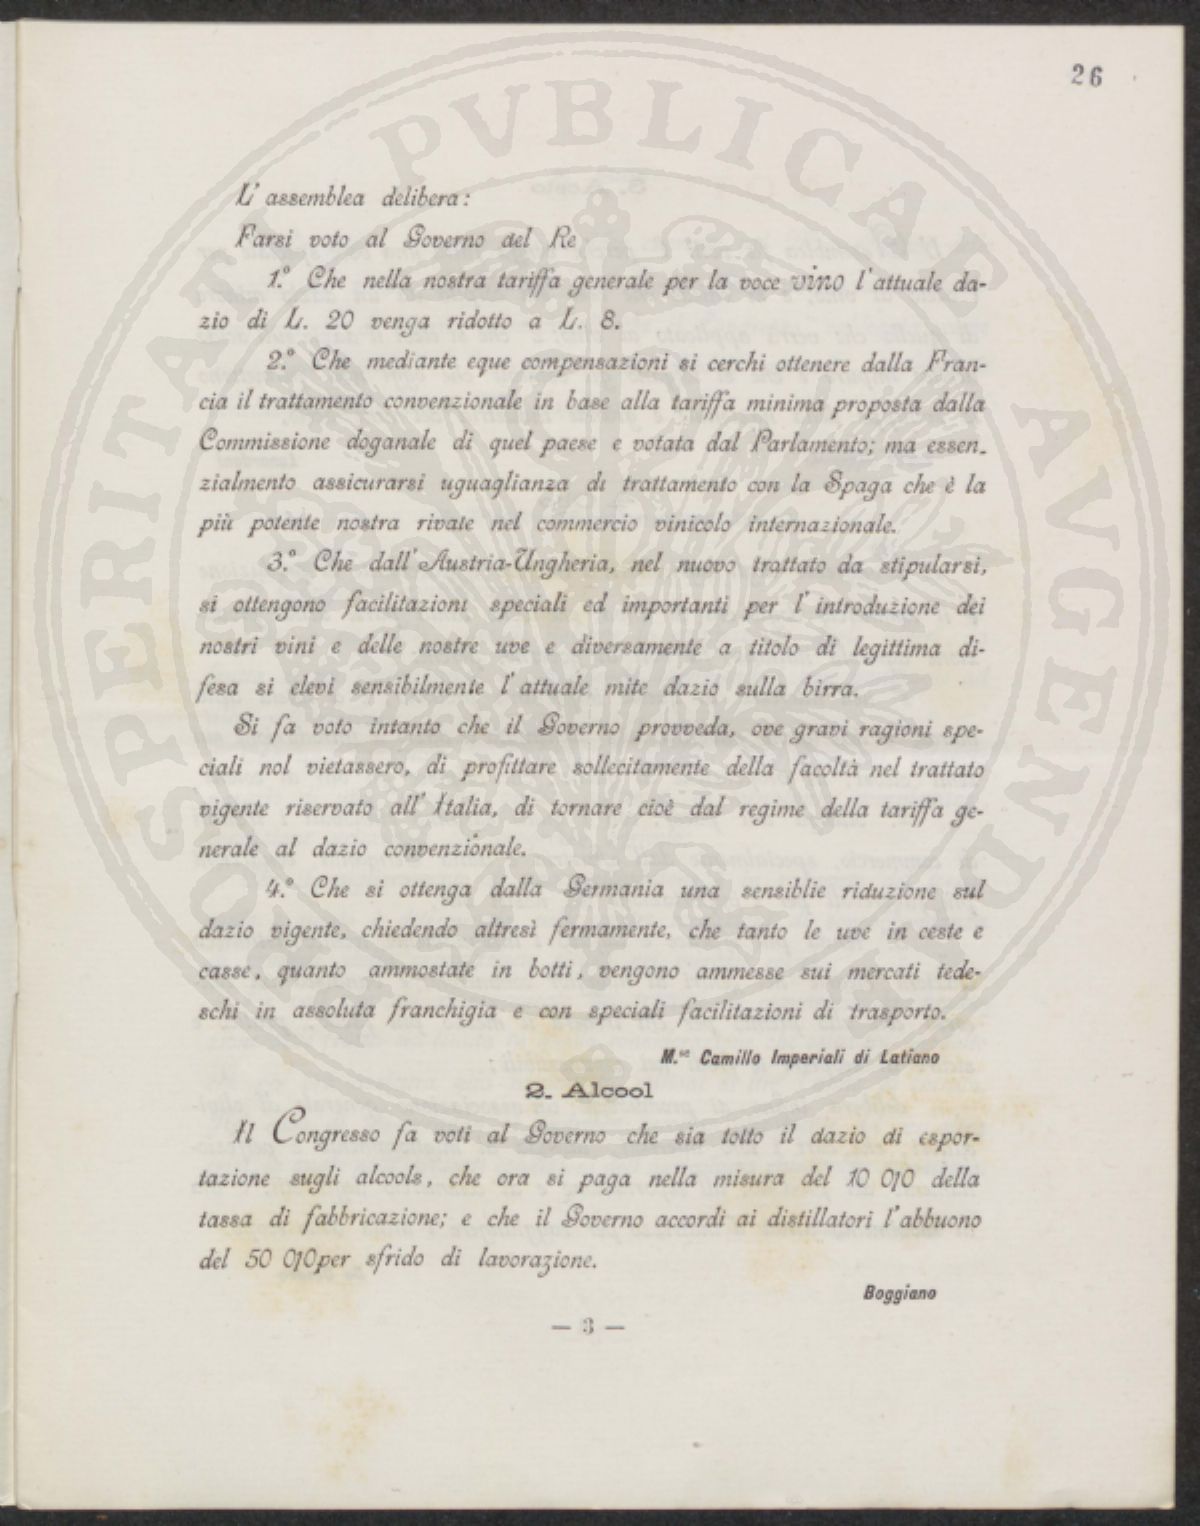 26
L' assemblea delibera:
Farsi voto al Governo del Re
1.° Che nella nostra tariffa generale per la voce vino l'attuale da-
zio di L. 20 venga ridotto a L. 8.
2.° Che mediante eque compensazioni si cerchi ottenere dalla Fran-
cia il trattamento convenzionale in base alla tariffa minima proposta dalla
Commissione doganale di quel paese e votata dal Parlamento; ma essen.
zialmento assicurarsi uguaglianza di trattamento con la Spaga che è la
più potente nostra rivate nel commercio vinicolo internazionale.
3.° Che dall' Austria-Ungheria, nel nuovo trattato da stipularsi,
si ottengono facilitazioni speciali ed importanti per l' introduzione dei
nostri vini e delle nostre uve e diversamente a titolo di legittima di-
fesa si elevi sensibilmente l' attuale mite dazio sulla birra.
Si fa voto intanto che il Governo provveda, ove gravi ragioni spe-
ciali nol vietassero, di profittare sollecitamente della facoltà nel trattato
vigente riservato all' Italia, di tornare cioè dal regime della tariffa ge-
nerale al dazio convenzionale.
4.° Che si ottenga dalla Germania una sensiblie riduzione sul
dazio vigente, chiedendo altresì fermamente, che tanto le uve in ceste e
casse, quanto ammostate in botti, vengono ammesse sui mercati tede-
schi in assoluta franchigia e con speciali facilitazioni di trasporto.
M.se Camillo Imperiali di Latiano
2. Alcool
Il Congresso fa voti al Governo che sia totto il dazio di espor-
tazione sugli alcools, che ora si paga nella misura del 10 0|0 della
tassa di fabbricazione; e che il Governo accordi ai distillatori l'abbuono
del 50 0|0 per sfrido di lavorazione.
Boggiano
— 3 —
PROSPERITATI PVBLICAE AVGENDAE